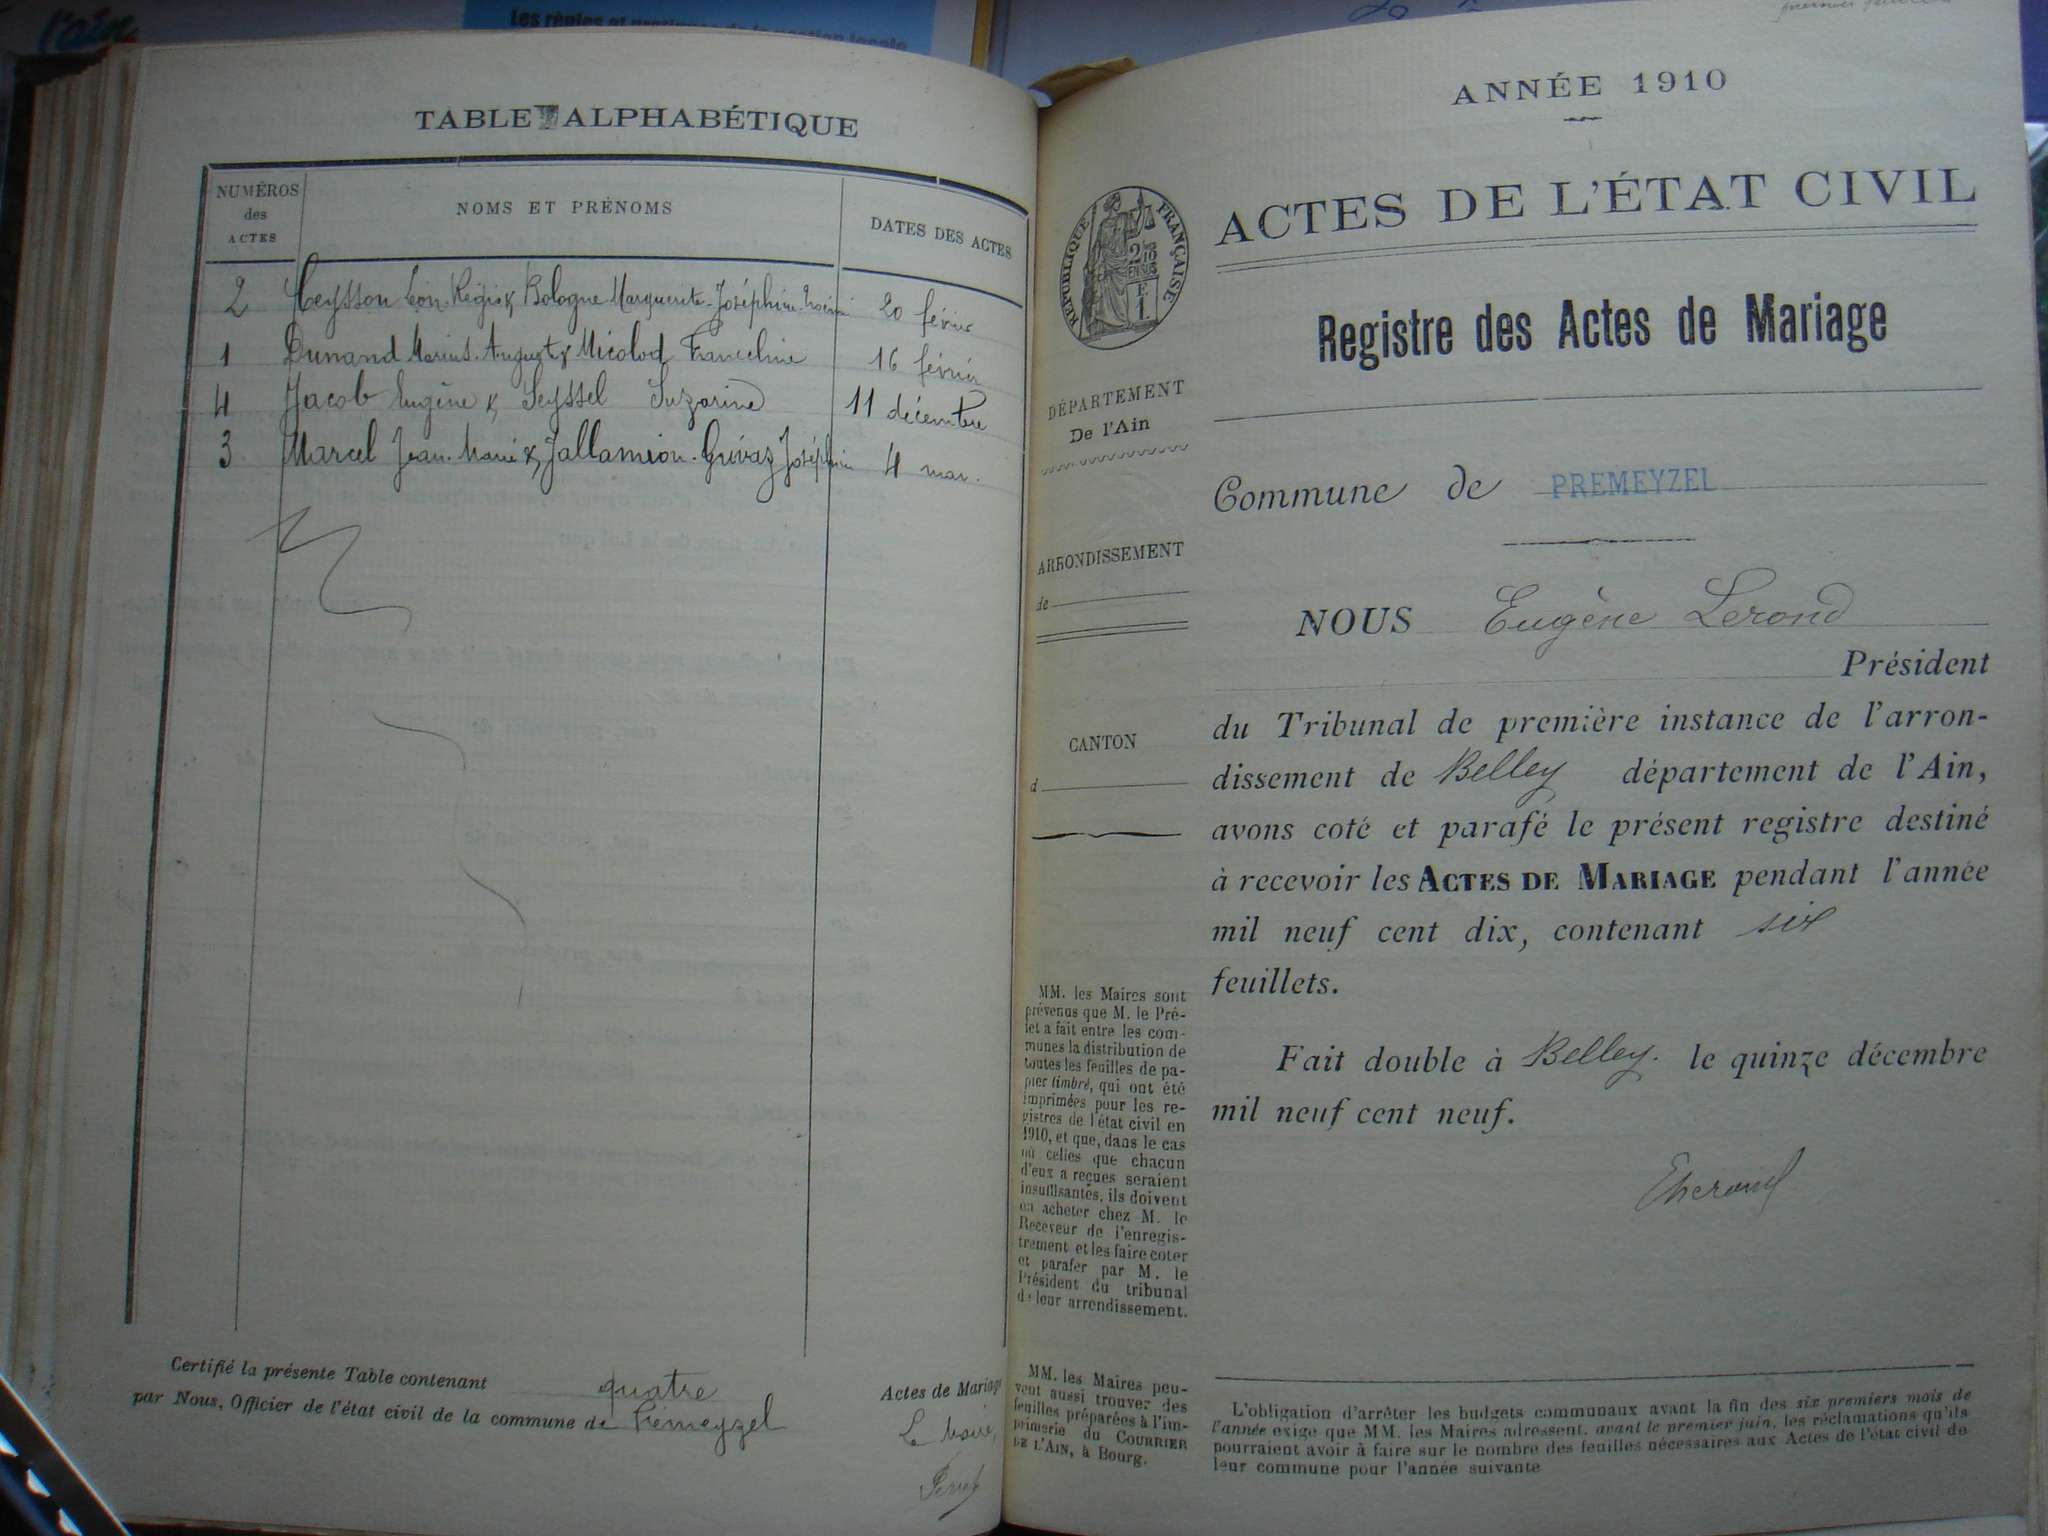 l'ain
Les règles et pratiques de la gestion locale
TABLE ALPHABÉTIQUE
NUMÉROS des ACTES
NOMS ET PRÉNOMS
DATES DES ACTES
2 Ceysson Léon-Régis & Bologne Marguerite-Joséphine 20 février
1 Dunand Marius-Auguste & Micolod Franceline 16 février
4 Jacob Eugène & Seyssel Suzarine 11 décembre
3 Marcel Jean-Marie & Jallamion-Grivaz Joséphine 4 mars
Certifié la présente Table contenant quatre Actes de Mariage
par Nous, Officier de l'état civil de la commune de Prémeyzel
Le Maire,
ANNÉE 1910
RÉPUBLIQUE FRANÇAISE
ACTES DE L'ÉTAT CIVIL
Registre des Actes de Mariage
DÉPARTEMENT
De l'Ain
Commune de PREMEYZEL
ARRONDISSEMENT
de
CANTON
d
NOUS Eugène Lerond
Président
du Tribunal de première instance de l'arron-
dissement de Belley département de l'Ain,
avons coté et parafé le présent registre destiné
à recevoir les ACTES DE MARIAGE pendant l'année
mil neuf cent dix, contenant six
feuillets.
Fait double à Belley. le quinze décembre
mil neuf cent neuf.
MM. les Maires sont
prévenus que M. le Pré-
fet a fait entre les com-
munes la distribution de
toutes les feuilles de pa-
pier timbré, qui ont été
imprimées pour les re-
gistres de l'état civil en
1910, et que, dans le cas
où celles que chacun
d'eux a reçues seraient
insuffisantes, ils doivent
en acheter chez M. le
Receveur de l'enregis-
trement et les faire coter
et parafer par M. le
Président du tribunal
de leur arrondissement.
MM. les Maires peu-
vent aussi trouver des
feuilles préparées à l'im-
primerie du COURRIER
DE L'AIN, à Bourg.
L'obligation d'arrêter les budgets communaux avant la fin des six premiers mois de
l'année exige que MM. les Maires adressent, avant le premier juin, les réclamations qu'ils
pourraient avoir à faire sur le nombre des feuilles nécessaires aux Actes de l'état civil de
leur commune pour l'année suivante